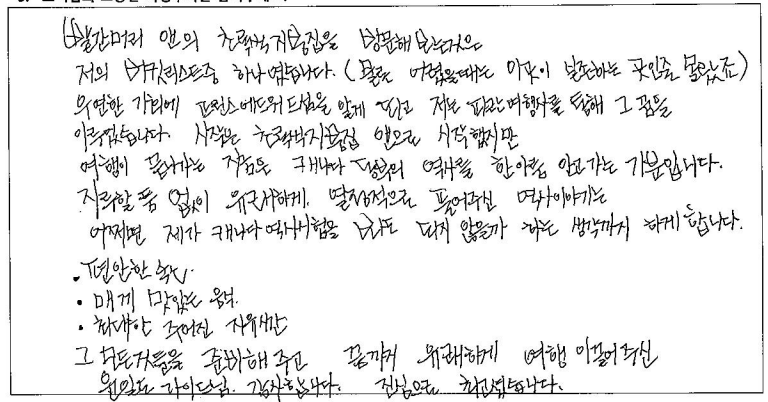 빨간머리 앤의 초록색지붕집을 방문해 보는것은
저의 버킷리스트중 하나였습니다. (물론 어렸을때는 이곳이 실존하는 곳인줄 몰랐죠)
우연한 기회에 프린스에드워드섬을 알게 되고 저는 파란여행사를 통해 그 꿈을
이루었습니다. 시작은 초록색지붕집 앤으로 시작했지만
여행이 끝나가는 지금은 캐나다 동부의 역사를 한아름 안고가는 기분입니다.
지루할 틈 없이 유쾌하게, 열정적으로 풀어주신 역사이야기는
어쩌면 제가 캐나다역사시험을 봐도 되지 않을까 하는 생각까지 하게 합니다.
· 편안한 숙소
· 매끼 맛있는 음식
· 최대한 주어진 자유시간
그 모든것들을 준비해 주고 끝까지 유쾌하게 여행 이끌어주신
가이드님. 감사합니다. 진심으로 최고였습니다.